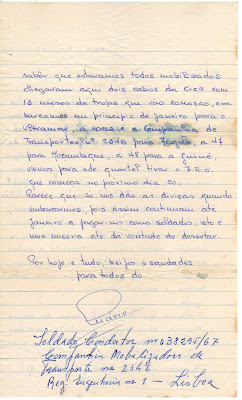 saber que estavamos todos mobilizados
chegaram aqui dois cabos da C.C.S com
18 meses de tropa que vão conosco, em-
barcamos em principio de janeiro para o
Ultramar, a nossa é a Companhia de
Transportes nº 2346 para Angola, a 47
para Moçambique, a 48 para a Guiné,
vamos para este quartel tirar o I.A.O.
que começa no proximo dia 20.
Parece que só nos dão as divisas quando
embarcarmos, pois assim continuam até
janeiro a pagar-nos como soldados, isto é
uma miseria até dá vontade de desertar.
Por hoje é tudo, beijos e saudades
para todos do
Mário
Soldado Condutor nº 038295/67
Companhia Mobilizadora de
Transporte nº 2346
Reg. Engenharia nº 1 - Lisboa